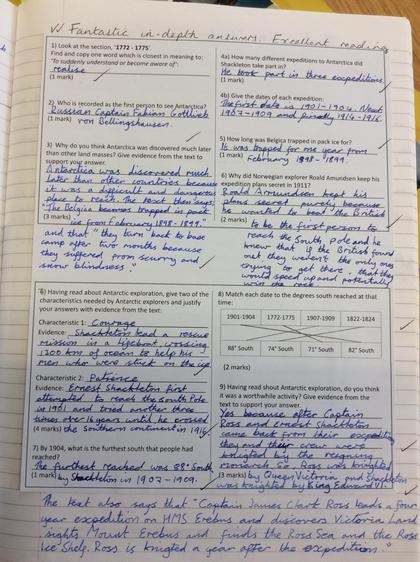 W Fantastic in-depth answers. Excellent reading
1) Look at the section, '1772 - 1775'.
Find and copy one word which is closest in meaning to:
'To suddenly understand or become aware of':
realise
(1 mark)
2) Who is recorded as the first person to see Antarctica?
Russian Captain Fabian Gottlieb
(1 mark) von Bellingshausen.
3) Why do you think Antarctica was discovered much
later than other land masses? Give evidence from the text to
support your answer.
Antarctica was discovered much
later than other countries because
it was a difficult and dangerous
place to reach. The text then says
"The Belgica becomes trapped in pack
(3 marks) ice from February 1898-1899."
and that "they turn back to base
camp after two months because
they suffered from scurvy and
snow blindness."
4a) How many different expeditions to Antarctica did
Shackleton take part in?
He took part in three expeditions.
(1 mark)
4b) Give the dates of each expedition:
The first date is 1901-1904. Next
1907-1909 and finally 1914-1916.
(1 mark)
5) How long was Belgica trapped in pack ice for?
It was trapped for one year from
(1 mark) February 1898-1899.
6) Why did Norwegian explorer Roald Amundsen keep his
expedition plans secret in 1911?
Roald Amundsen kept his
plans secret purely because
he wanted to beat the British
(2 marks) to be the first person to
reach the South pole and he
knew that if the British found
out they weren't the only ones
trying to get there, that they
would speed up and potentially
win the race.
6) Having read about Antarctic exploration, give two of the
characteristics needed by Antarctic explorers and justify
your answers with evidence from the text:
Characteristic 1: Courage
Evidence: Shackleton lead a rescue
mission in a lifeboat, crossing
1300 km of ocean to help his
men who were stuck on the ice
Characteristic 2: Patience
Evidence: Ernest Shackleton first
attempted to reach the South Pole
in 1901 and tried another three
times over 16 years until he crossed
(4 marks) the Southern continent in 1916.
7) By 1904, what is the furthest south that people had
reached?
The furthest reached was 88° South
(1 mark) by Shackleton in 1907-1909.
8) Match each date to the degrees south reached at that
time:
1901-1904 1772-1775 1907-1909 1822-1824
88° South 74° South 71° South 82° South
(2 marks)
9) Having read about Antarctic exploration, do you think
it was a worthwhile activity? Give evidence from the
text to support your answer.
Yes because after Captain
Ross and Ernest Shackleton
came back from their expedition
they and their crew were
knighted by the reigning
monarch. So, Ross was knighted
(3 marks) by Queen Victoria and Shackleton
was knighted by King Edward VII.
The text also says that "Captain James Clark Ross leads a four
year expedition on HMS Erebus and discovers Victoria Land
sights Mount Erebus and finds the Ross Sea and the Ross
Ice Shelf. Ross is knigted a year after the expedition."